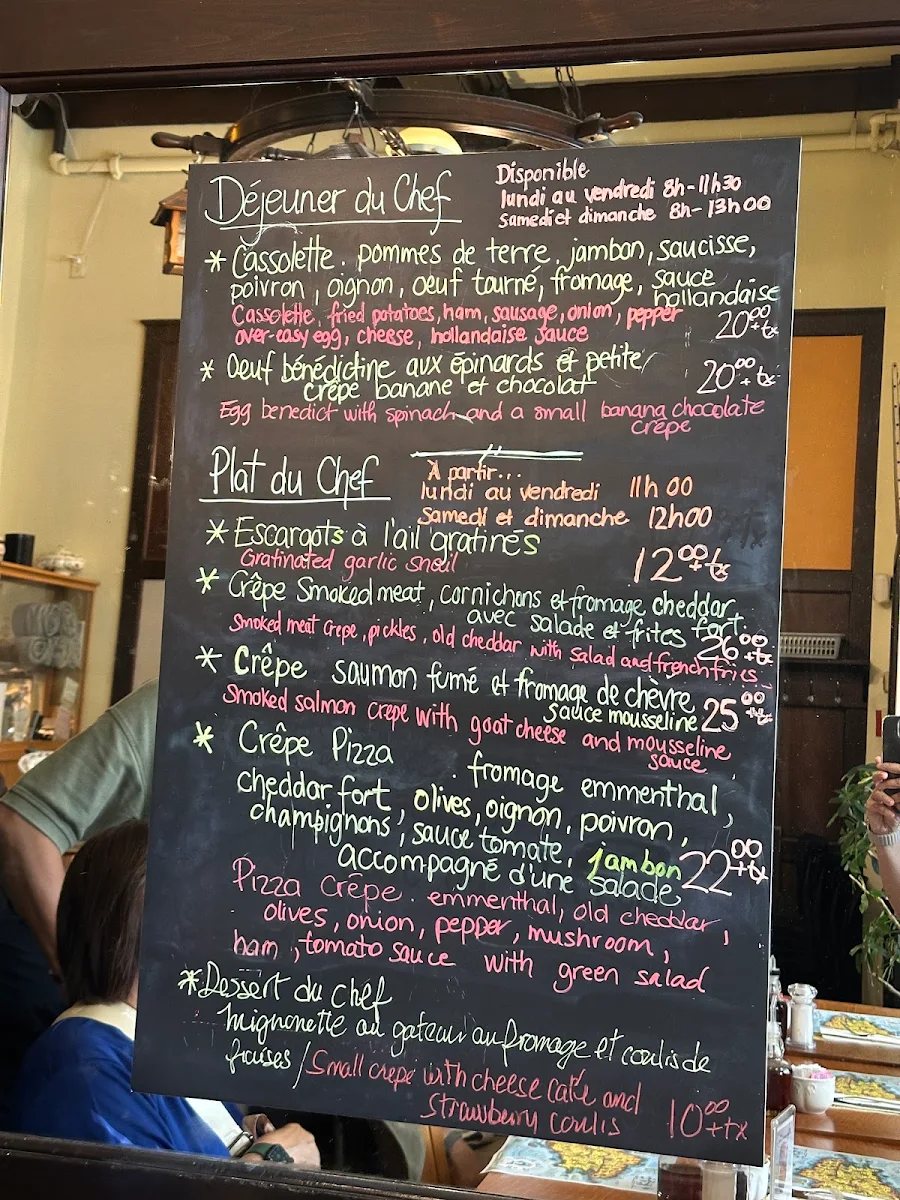 Déjeuner du Chef
Disponible
lundi au vendredi 8h-11h30
samedi et dimanche 8h-13h00
* Cassolette. pommes de terre. jambon, saucisse,
poivron, oignon, oeuf tourné, fromage, sauce
hollandaise
Cassolette, fried potatoes, ham, sausage, onion, pepper
over-easy egg, cheese, hollandaise sauce
20⁰⁰+tx
* Oeuf bénédictine aux épinards et petite
crêpe banane et chocolat
20⁰⁰+tx
Egg benedict with spinach and a small banana chocolate
crêpe
Plat du Chef
À partir...
lundi au vendredi 11h00
Samedi et dimanche 12h00
* Escargots à l'ail gratinés
Gratinated garlic snail
12⁰⁰+tx
* Crêpe Smoked meat, cornichons et fromage cheddar
fort.
avec salade et frites
26⁰⁰+tx
Smoked meat crepe, pickles, old cheddar with salad and french fries
* Crêpe saumon fumé et fromage de chèvre
sauce mousseline
25⁰⁰+tx
Smoked salmon crepe with goat cheese and mousseline
sauce
* Crêpe Pizza . fromage emmenthal,
cheddar fort, olives, oignon, poivron,
champignons, sauce tomate, jambon
accompagné d'une salade
22⁰⁰+tx
Pizza crêpe. emmenthal, old cheddar,
olives, onion, pepper, mushroom,
ham, tomato sauce with green salad
* Dessert du chef
Mignonette au gateau au fromage et coulis de
fraises / Small crepe with cheese cake and
strawberry coulis
10⁰⁰+tx